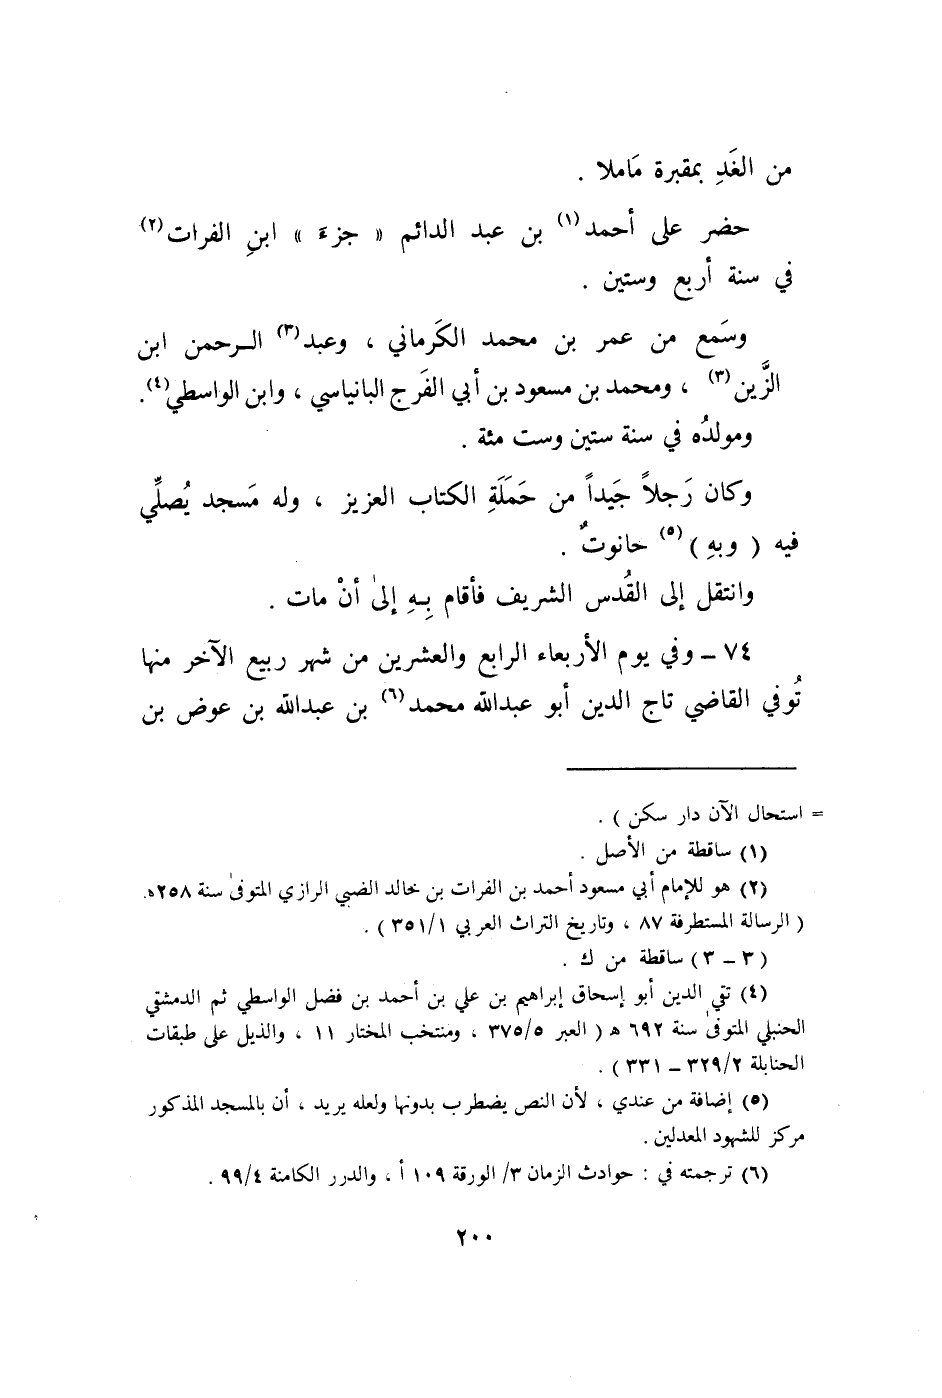 من الغَدِ بمقبرة مَاملا .
حضر على أحمد(١) بن عبد الدائم « جزءَ » ابنِ الفرات(٢)
في سنة أربع وستين .
وسَمع من عمر بن محمد الكَرماني ، وعبد(٣) الـرحمن ابن
الزَّين(٣) ، ومحمد بن مسعود بن أبي الفَرج البانياسي ، وابن الواسطي(٤).
ومولدُه في سنة ستين وست مئة .
وكان رَجلاً جَيداً من حَمَلَةِ الكتاب العزيز ، وله مَسجد يُصلِّي
فيه ( وبهِ )(٥) حانوتٌ .
وانتقل إلى القُدس الشريف فأقام بِـهِ إلىٰ أنْ مات .
٧٤ ـ وفي يوم الأربعاء الرابع والعشرين من شهر ربيع الآخر منها
تُوفي القاضي تاج الدين أبو عبدالله محمد(٦) بن عبدالله بن عوض بن
= استحال الآن دار سكن ) .
(١) ساقطة من الأصل .
(٢) هو للإمام أبي مسعود أحمد بن الفرات بن خالد الضبي الرازي المتوفىٰ سنة ٢٥٨ه.
( الرسالة المستطرفة ٨٧ ، وتاريخ التراث العربي ٣٥١/١ ) .
( ٣ ـ ٣ ) ساقطة من ك .
(٤) تقي الدين أبو إسحاق إبراهيم بن علي بن أحمد بن فضل الواسطي ثم الدمشقي
الحنبلي المتوفىٰ سنة ٦٩٢ ه ( العبر ٣٧٥/٥ ، ومنتخب المختار ١١ ، والذيل على طبقات
الحنابلة ٣٢٩/٢ ـ ٣٣١ ) .
(٥) إضافة من عندي ، لأن النص يضطرب بدونها ولعله يريد ، أن بالمسجد المذكور
مركز للشهود المعدلين .
(٦) ترجمته في : حوادث الزمان ٣/ الورقة ١٠٩ أ ، والدرر الكامنة ٩٩/٤ .
٢٠٠